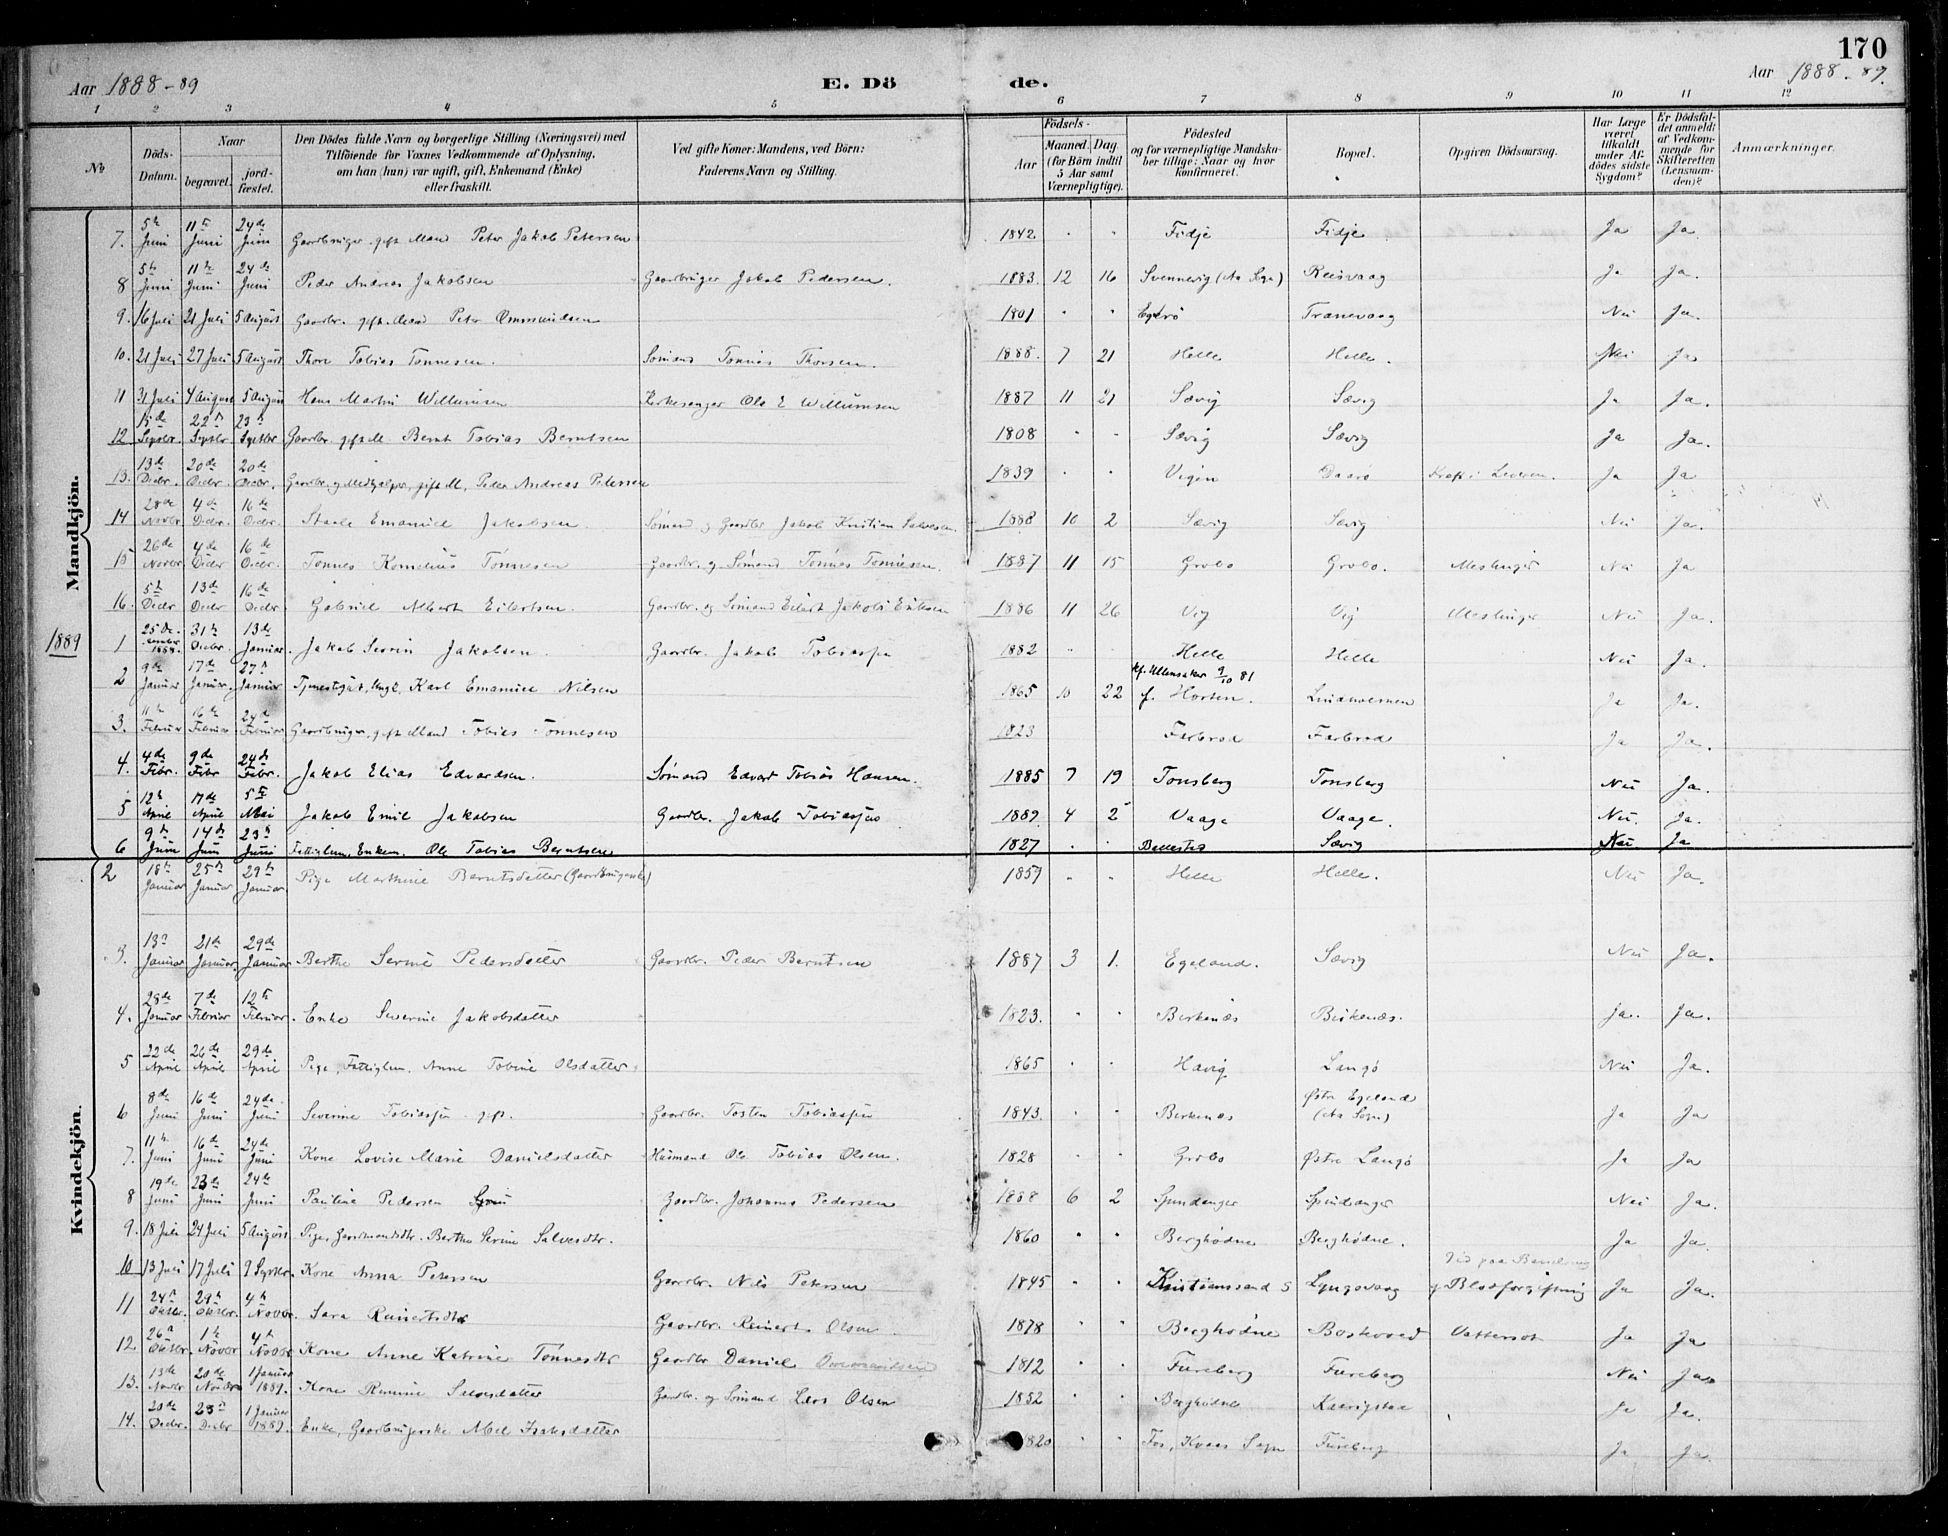 170
Aar 1888-89 E. Dö de. Aar 1888-89.
1 2 3 4 5 6 7 8 9 10 11 12
No
Döds-Datum.
Naar begravet. jordfæstet.
Den Dödes fulde Navn og borgerlige Stilling (Næringsvei) med Tilföiende for Voxnes Vedkommende af Oplysning, om han (hun) var ugift, gift, Enkemand (Enke) eller fraskilt.
Ved gifte Koner: Mandens, ved Börn: Faderens Navn og Stilling.
Födsels- Aar Maaned. Dag. (for Börn indtil 5 Aar samt Værnepligtige).
Födested og for værnepligtige Mandskaber tillige: Naar og hvor konfirmeret.
Bopæl.
Opgiven Dödsaarsag.
Har Læge været tilkaldt under Afdödes sidste Sygdom?
Er Dödsfaldet anmeldt af Vedkommende for Skifteretten (Lensmanden)?
Anmærkninger.
Mandkjön.
7. 5te Juni 11te Juni 24de Juni Gaardbruger, gift Mand Peter Jakob Petersen 1842 " " Fidje Fidje Ja Ja
8 5te Juni 11te Juni 24de Juni Peder Andreas Jakobsen Gaardbruger Jakob Pedersen. 1883. 12 16 Svennevig (Aa Sogn) Reisvaag Ja Ja.
9. 16 Juli 21 Juli 5 August Gaardbr. gift. Mand Peter Ommundsen 1801 " " Egerø Tranevaag Nei Ja.
10. 21 Juli 27 Juli 5 August Thore Tobias Tønnesen. Sømand Tønnes Thorsen. 1888. 7 21 Helle Helle. Nei Ja
11 31 Juli 4 August 5 August Hans Martin Willumsen Kirkesanger Ole E Willumsen 1887 11 21 Sævig Sævig Ja Ja.
12 15de Septbr. 22 Septbr 23 Septbr Gaardbr. gift M. Bernt Tobias Berntsen 1808 " " Sævig Sævig Ja Ja.
13. 13de Decbr. 20de Decbr. 20de Decbr. Gaardbr. og Medhjælper, gift M, Peder Andreas Petersen 1839 " " Vigen Daarø Kræft i Leveren. Ja Ja
14 28de Novbr 4de Decbr. 16de Decbr. Staale Emanuel Jakobsen. Sømand og Gaardbr Jakob Kristian Salvesen. 1888 10 2 Sævig Sævig Nei Ja.
15 26de Novbr. 4de Decbr 16de Decbr. Tønnes Kornelius Tønnesen Gaardbr. og Sømand Tønnes Tønnesen. 1887 11 15 Grobo Grobo. Meslinger Nei Ja
16. 5te Decbr 13de Decbr 16de Decbr Gabriel Albert Eilertsen. Gaardbr. og Sømand Eilert Jakobs Eriksen 1886 11 26 Vig Vig Meslinger Nei Ja.
1889
1 25de December 1888. 31te Decbr. 13de Januar. Jakob Severin Jakobsen. Gaardbr. Jakob Tobiassen 1882 " " Helle Helle Nei Ja.
2 9de Januar 17de Januar. 27 Januar Tjenestegut, Ungk. Karl Emanuel Nilsen 1865 10 22 kf. Ullensaker 9/10 81 f. Horten. Lindholmen Ja Ja.
3. 11te Februar 16de Februar 24de Februar Gaardbruger, gift Mand Tobias Tønnesen 1823 Farbrod Farbrod Ja Ja.
4. 4de Febr. 9de Febr 24de Febr. Jakob Elias Edvardsen. Sømand Edvart Tobias Hansen. 1885 7 19 Tonsberg Tonsberg Nei Ja.
5 12te April 17de April 5te Mai Jakob Emil Jakobsen Gaardbr. Jakob Tobiassen 1889. 4 2 Vaage Vaage. Nei. Ja.
6 9de Juni 14de Juni 23 Juni Fattiglem, Enkem. Ole Tobias Berntsen 1827 " " Sævig Nei Ja
Kvindekjön.
2 18te Januar 25de Januar 29te Januar Pige Marthine Berntsdatter (Gaardbrugerske) 1859 " " Helle Helle. Nei Ja.
3. 13 Januar 21de Januar. 29de Januar Berthe Serine Pedersdatter Gaardbr. Peder Berntsen 1887 3 1. Egeland. Sævig Nei Ja.
4. 28de Januar 7de Februar 12te Februar. Enke Severine Jakobsdatter 1823. " " Birkenæs Birkenæs. Ja. Ja.
5 22de April 26de April 29de April Pige, Fattiglem, Anne Tobine Olsdatter 1865 " " Havig Langø Nei Ja.
6 8de Juni 16de Juni 24de Juni Severine Tobiassen gift. Gaardbr. Tosten Tobiassen 1843. " " Birkenæs Østre Egeland (Aa Sogn) Ja Ja
7. 11te Juni 16de Juni 24de Juni Kone Lovise Marie Danielsdatter Husmand Ole Tobias Olsen. 1828 " " Grobo Østre Langø Ja Ja
8 19de Juni 23de Juni 24de Juni Pauline Pedersen Gaardbr. Johannes Pedersen 1888 6 2 Spindanger Spindanger Nei Ja.
9. 18 Juli 24 Juli 5 August Pige, Gaardmandsdtr. Berthe Serine Salvesdtr. 1860 " " Berghødne Berghødne. Ja Ja.
10 13 Juli 17 Juli 9 Septbr. Kone Anna Petersen Gaardbr. Nils Petersen 1845 " " Kristianssand S Lyngsvaag Død paa Barselseng g Blodforgiftning Ja Ja.
11 24 Oktbr. 29 Oktbr. 4 Novbr. Sara Reinertsdtr Gaardbr. Reinert Olsen. 1878 " " Berghødne Boskoved Vattersot Ja Ja
12. 26 Oktbr. 1te Novbr 4 Novbr Kone Anne Katrine Tønnesdtr Gaardbr Daniel Ommundsen 1812 " " Fureberg Fureberg Nei Ja.
13. 13de Novbr 20de Novbr 1 Januar 1889. Kone Gaardbr. og Sømand Lars Olsen 1832 " " Berghødne Ja Ja.
14. 20de Decbr. 28 Decbr 1 Januar 1889. Enke, Gaardbrugerske Abel Isaksdatter 1820 " " Fos, Kvaas Sogn Fureberg Ja Ja.